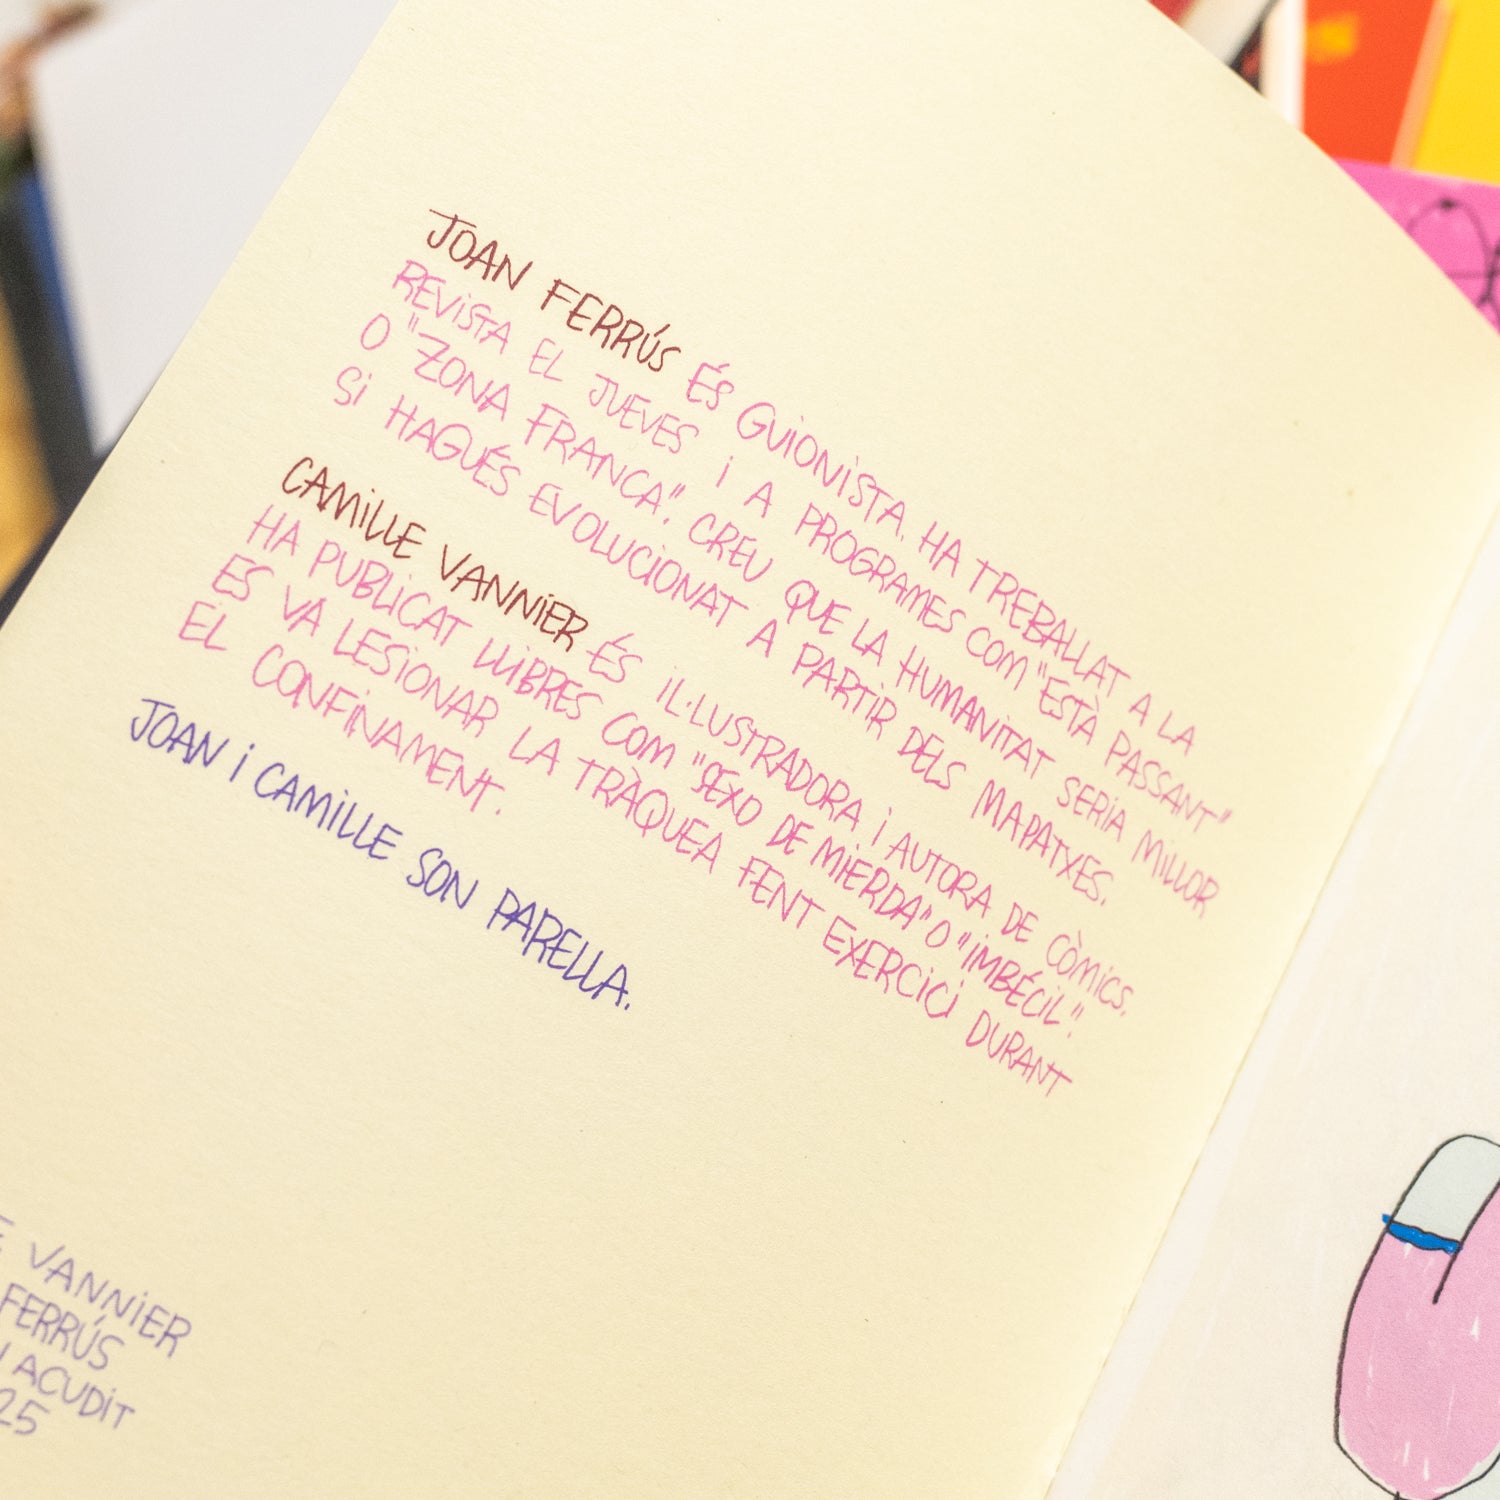 JOAN FERRÚS ÉS GUIONISTA. HA TREBALLAT A LA
REVISTA EL JUEVES I A PROGRAMES COM "ESTÀ PASSANT"
O "ZONA FRANCA". CREU QUE LA HUMANITAT SERIA MILLOR
SI HAGUÉS EVOLUCIONAT A PARTIR DELS MAPATXES.
CAMILLE VANNIER ÉS IL·LUSTRADORA I AUTORA DE CÒMICS.
HA PUBLICAT LLIBRES COM "SEXO DE MIERDA" O "IMBÉCIL".
ES VA LESIONAR LA TRÀQUEA FENT EXERCICI DURANT
EL CONFINAMENT.
JOAN I CAMILLE SON PARELLA.
VANNIER
FERRÚS
ACUDIT
25